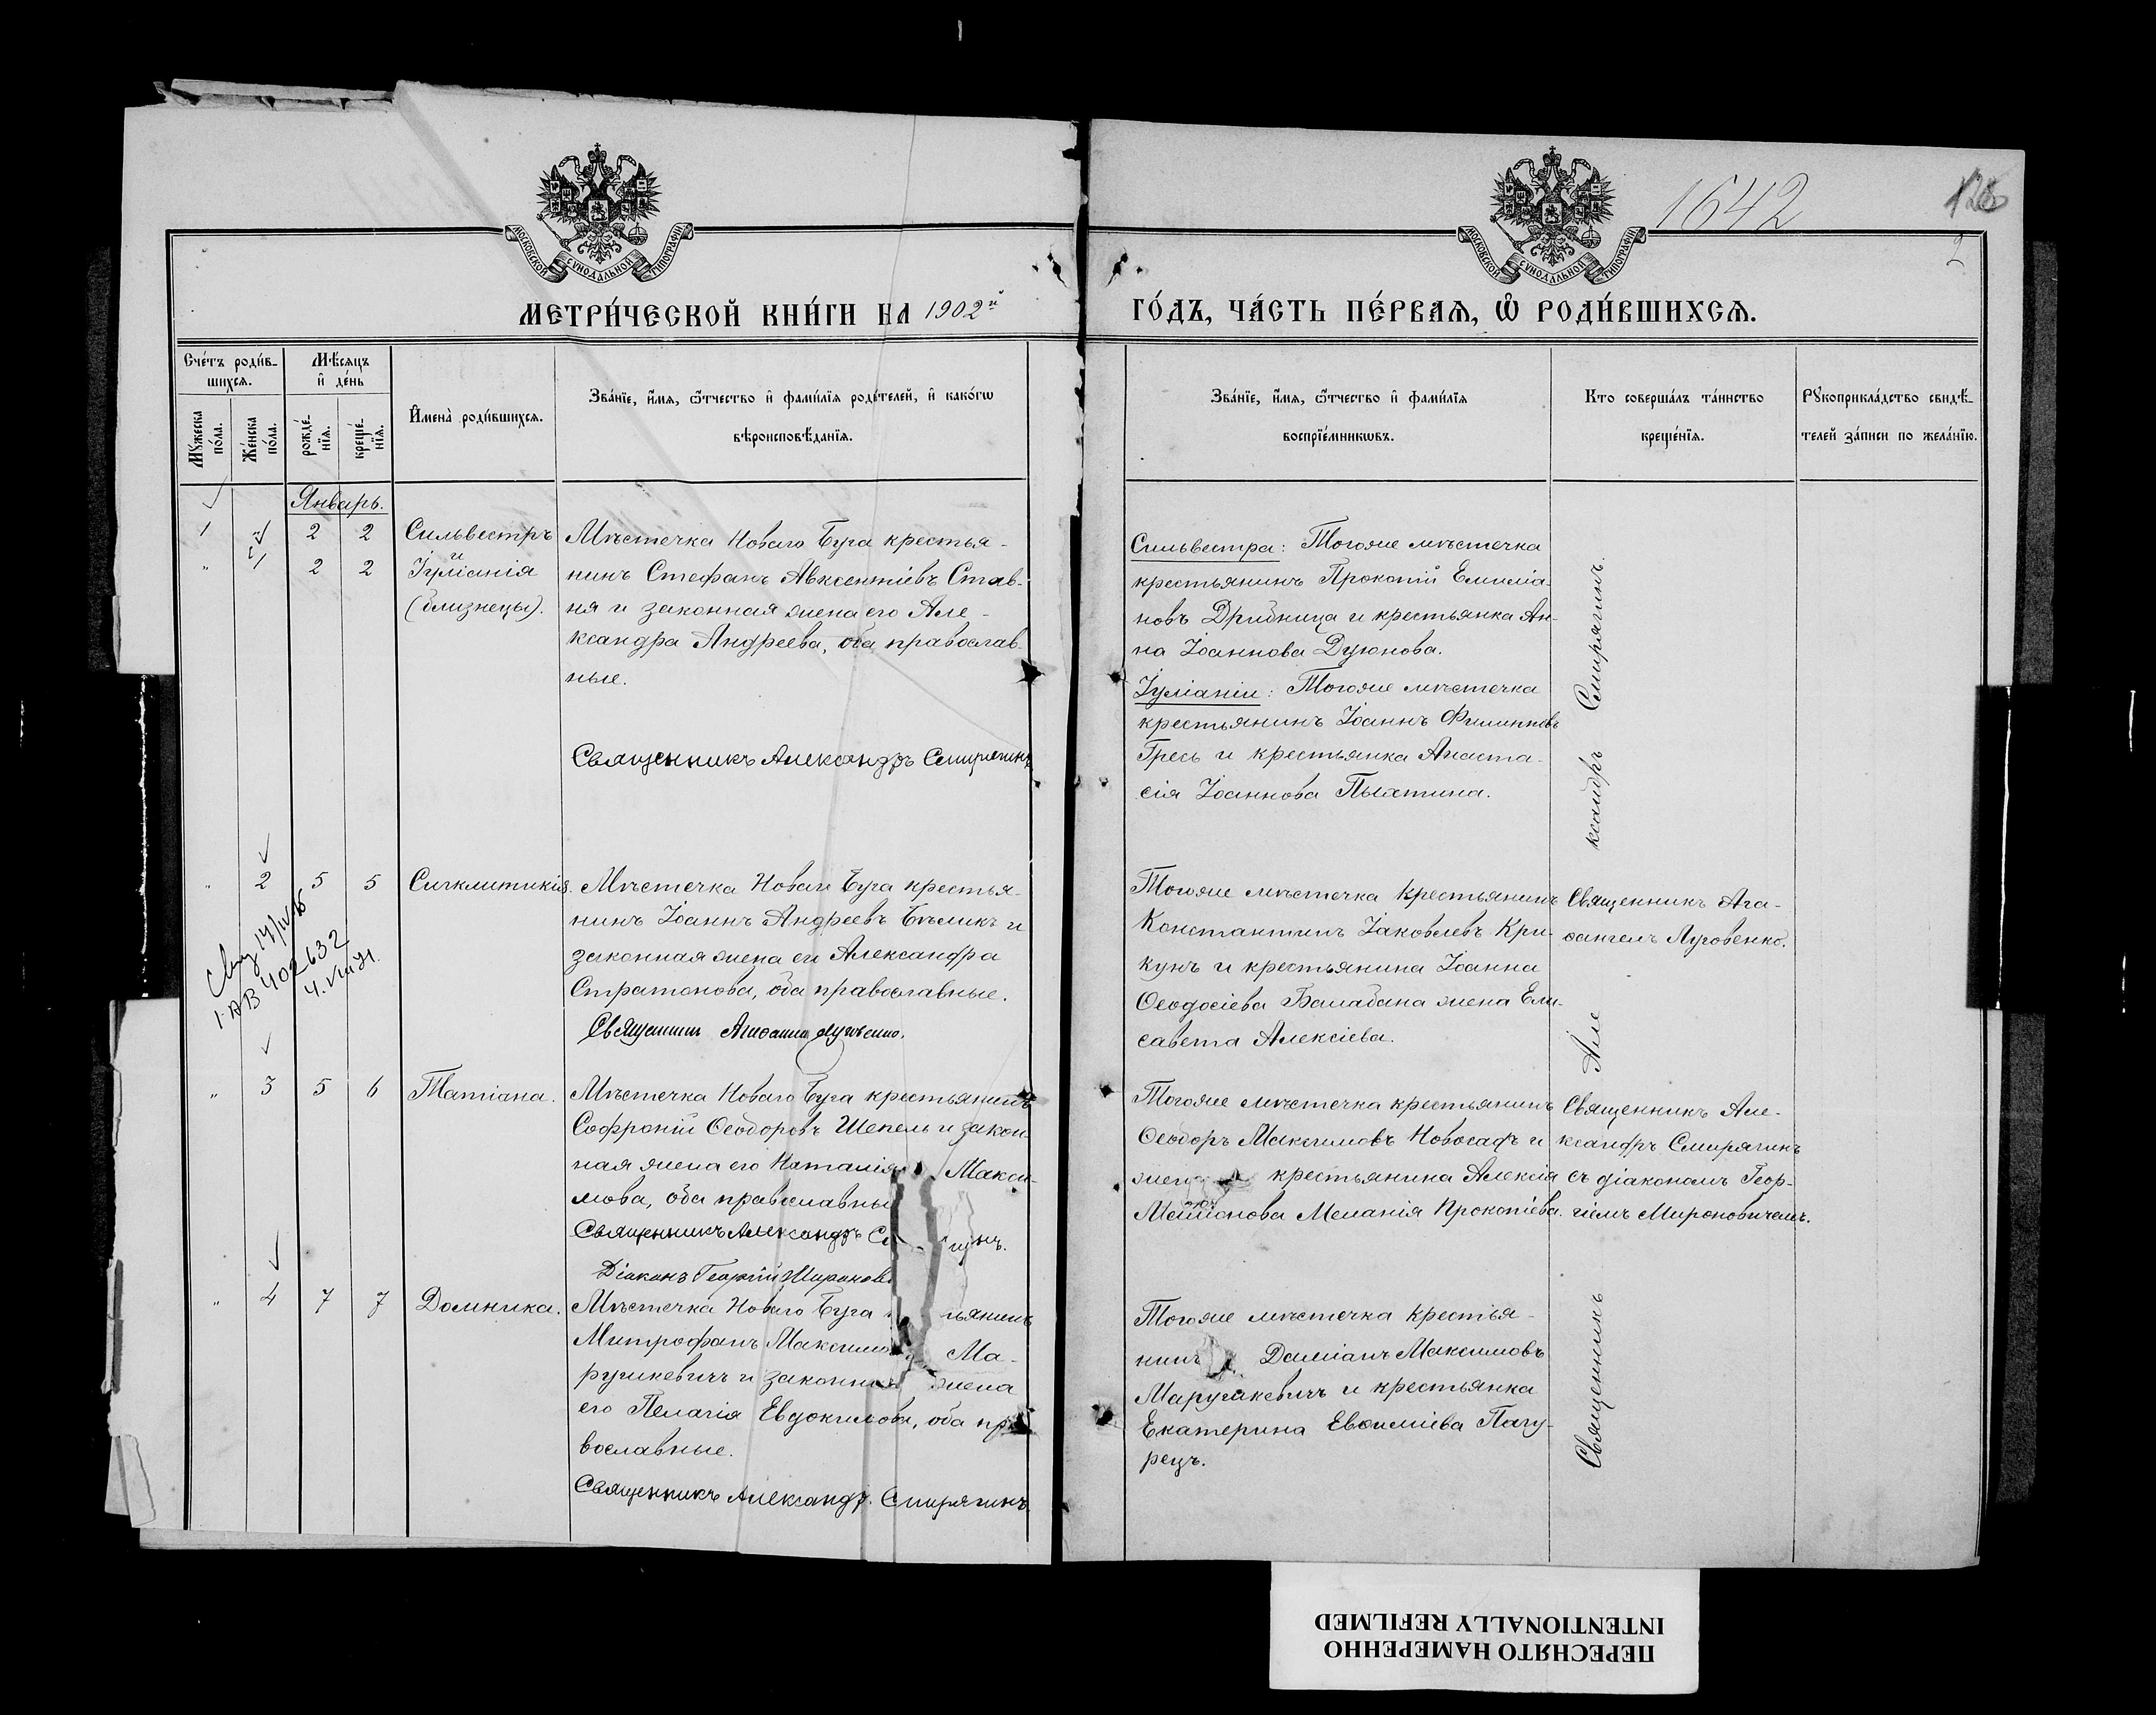 1642
126
2
МОСКОВСКОЙ СУНОДАЛЬНОЙ ТИПОГРАФІИ
МОСКОВСКОЙ СУНОДАЛЬНОЙ ТИПОГРАФІИ
МЕТРИ́ЧЕСКОЙ КНИ́ГИ НА 1902й
ГО́ДЪ, ЧА́СТЬ ПЕ́РВАѦ, Ѡ҆ РОДИ́ВШИХСѦ.
Сче́тъ роди́в-
шихсѧ.
Мꙋжеска
по́ла.
Же́нска
по́ла.
Мѣ́сѧцъ
и҆ де́нь
рожде́-
нїѧ.
креще́-
нїѧ.
И҆мена̀ роди́вшихсѧ.
Зва́нїе, и҆́мѧ, ѻ҆́тчество и҆ фами́лїѧ роди́телей, и҆ како́гѡ
вѣроисповѣ́данїѧ.
Зва́нїе, и҆́мѧ, ѻ҆́тчество и҆ фами́лїѧ
воспрїе́мникѡвъ.
Кто соверша́лъ та́инство
креще́нїѧ.
Рꙋкоприкла́дство свидѣ́-
телей за́писи по жела́нїю.
Январь.
1 " 2 2 Сильвестръ
и
" 1 2 2 Іуліанія
(близнецы).
Мѣстечка Новаго Буга крестья-
нинъ Стефанъ Авксентіевъ Став-
ня и законная жена его Але-
ксандра Андреева, оба православ-
ные.
Священникъ Александръ Смирягинъ
Сильвестра: Тогоже мѣстечка
крестьянинъ Прокопій Емиліа-
новъ Дрибница и крестьянка Ан-
на Іоаннова Дуюнова.
Іуліаніи: Тогоже мѣстечка
крестьянинъ Іоаннъ Филипповъ
Гресь и крестьянка Анаста-
сія Іоаннова Пыхтина.
Священникъ Александръ Смирягинъ
" 2 5 5 Сигклитикія.
Мѣстечка Новаго Буга крестья-
нинъ Іоаннъ Андреевъ Бѣликъ и
законная жена его Александра
Стратонова, оба православные.
Священникъ Агаѳангелъ Луговенко.
Тогоже мѣстечка крестьянинъ
Константинъ Іаковлевъ Кри-
кунъ и крестьянина Іоанна
Ѳеодосіева Балабана жена Ели-
савета Алексіева.
Священникъ Ага-
ѳангелъ Луговенко.
402-632
" 3 5 6 Татіана.
Мѣстечка Новаго Буга крестьянинъ
Софроній Ѳеодоровъ Шепель и закон-
ная жена его Наталія Макси-
мова, оба православны
Священникъ Александръ С гинъ.
Діаконъ Георгій Миронов
Тогоже мѣстечка крестьянинъ
Ѳеодоръ Максимовъ Новосадъ и
жена крестьянина Алексія
Меланія Прокопіева.
Священникъ Але-
ксандръ Смирягинъ
съ діакономъ Геор-
гіемъ Мироновичемъ.
" 4 7 7 Домника.
Мѣстечка Новаго Буга тьянинъ
Митрофанъ Максимо Ма-
рушкевичъ и законная жена
его Пелагія Евдокимова, оба пра
вославные.
Священникъ Александръ Смирягинъ.
Тогоже мѣстечка крестья-
нинъ Даміанъ Максимовъ
Марушкевичъ и крестьянка
Екатерина Евѳиміева Пагу-
рецъ.
ПЕРЕСНЯТО НАМЕРЕННО
INTENTIONALLY REFILMED